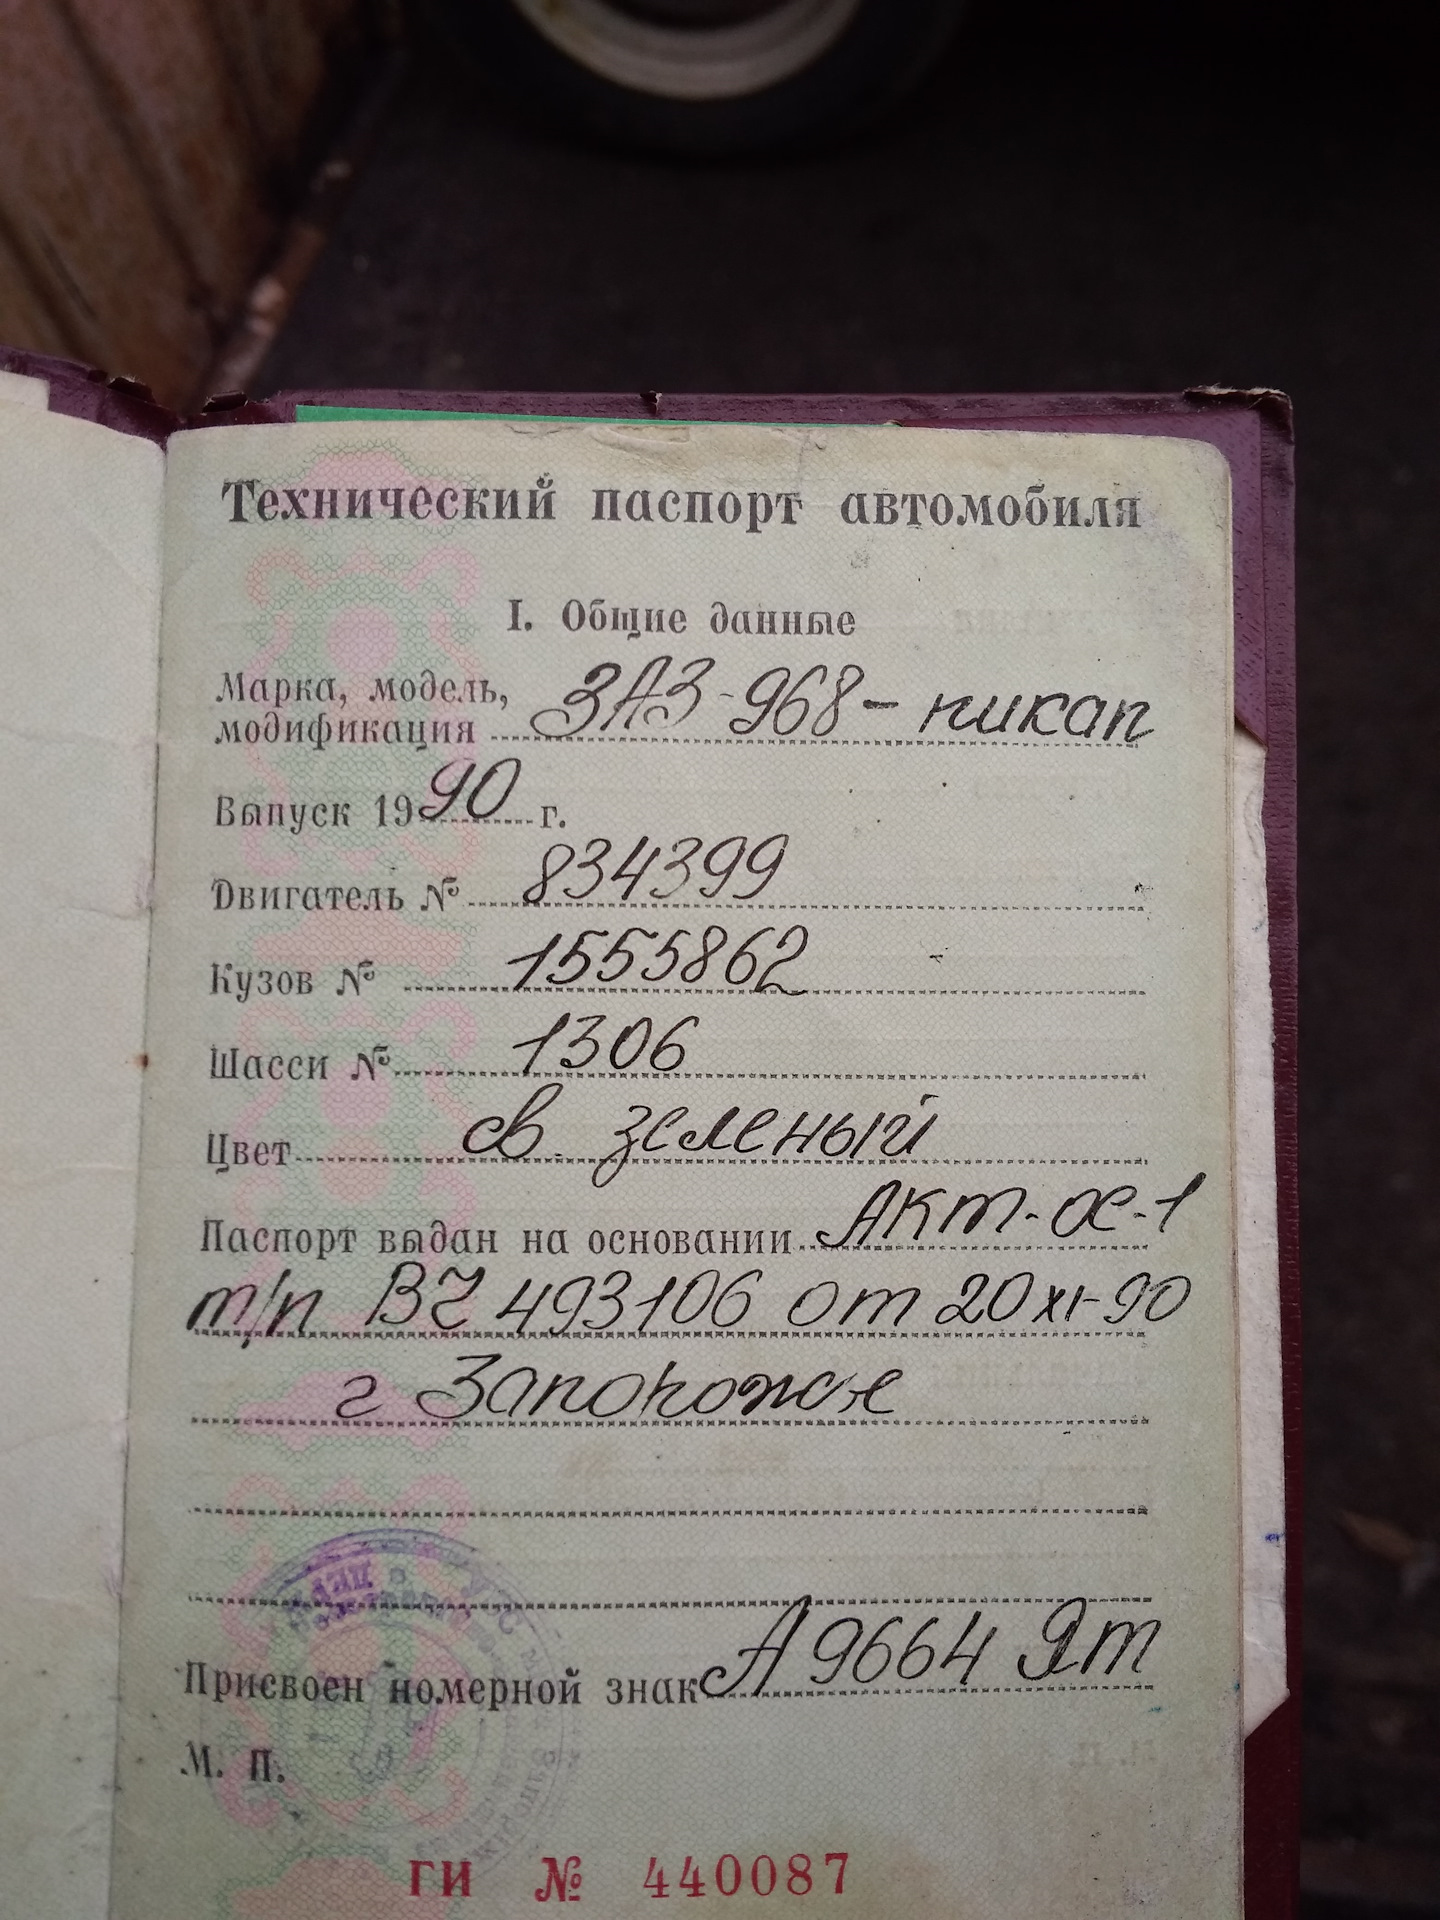 Технический паспорт автомобиля
I. Общие данные
Марка, модель,
модификация ЗАЗ-968-пикап
Выпуск 1990 г.
Двигатель № 834399
Кузов № 1555862
Шасси № 1306
Цвет св. зеленый
Паспорт выдан на основании АКТ-ОС-1
т/п ВЧ 493106 от 20 XI-90
г Запорожье
Присвоен номерной знак А 9664 ЯТ
М. П.
ГИ № 440087